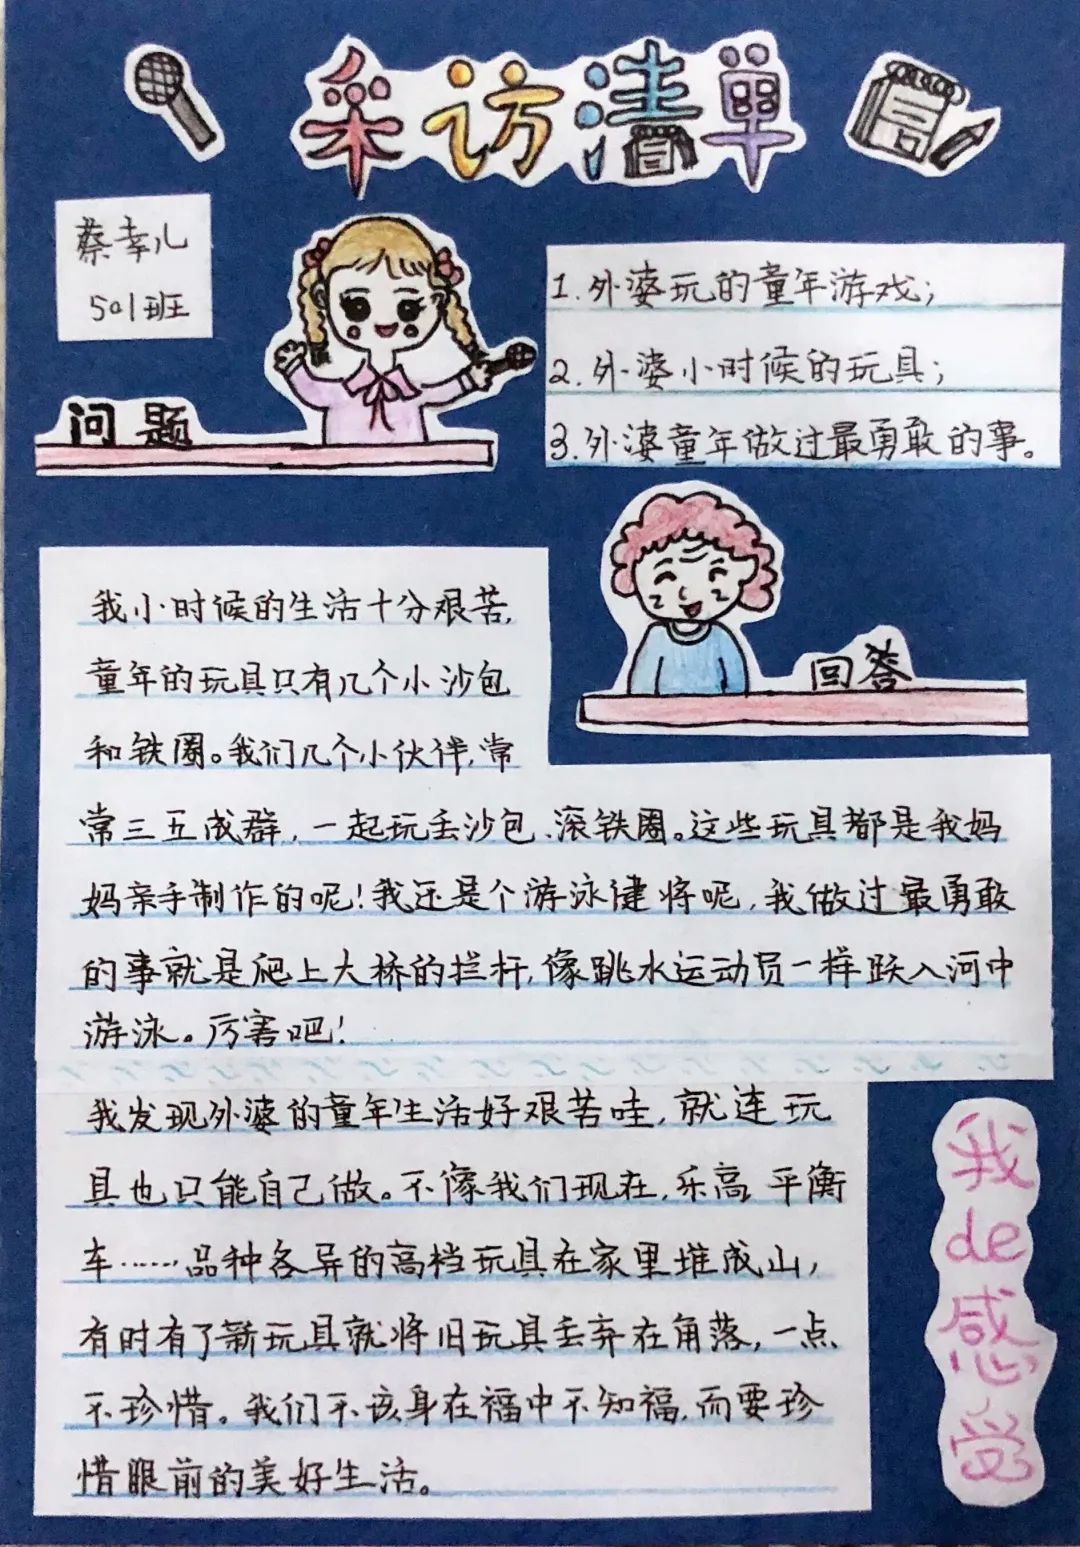 采访清单
蔡幸儿
501班
问题
1.外婆玩的童年游戏；
2.外婆小时候的玩具；
3.外婆童年做过最勇敢的事。
回答
我小时候的生活十分艰苦，
童年的玩具只有几个小沙包
和铁圈。我们几个小伙伴，常
常三五成群，一起玩丢沙包、滚铁圈。这些玩具都是我妈
妈亲手制作的呢！我还是个游泳健将呢，我做过最勇敢
的事就是爬上大桥的拦杆，像跳水运动员一样跃入河中
游泳。厉害吧！
我de感受
我发现外婆的童年生活好艰苦哇，就连玩
具也只能自己做。不像我们现在，乐高，平衡
车……品种各异的高档玩具在家里堆成山，
有时有了新玩具就将旧玩具丢弃在角落，一点
不珍惜。我们不该身在福中不知福，而要珍
惜眼前的美好生活。